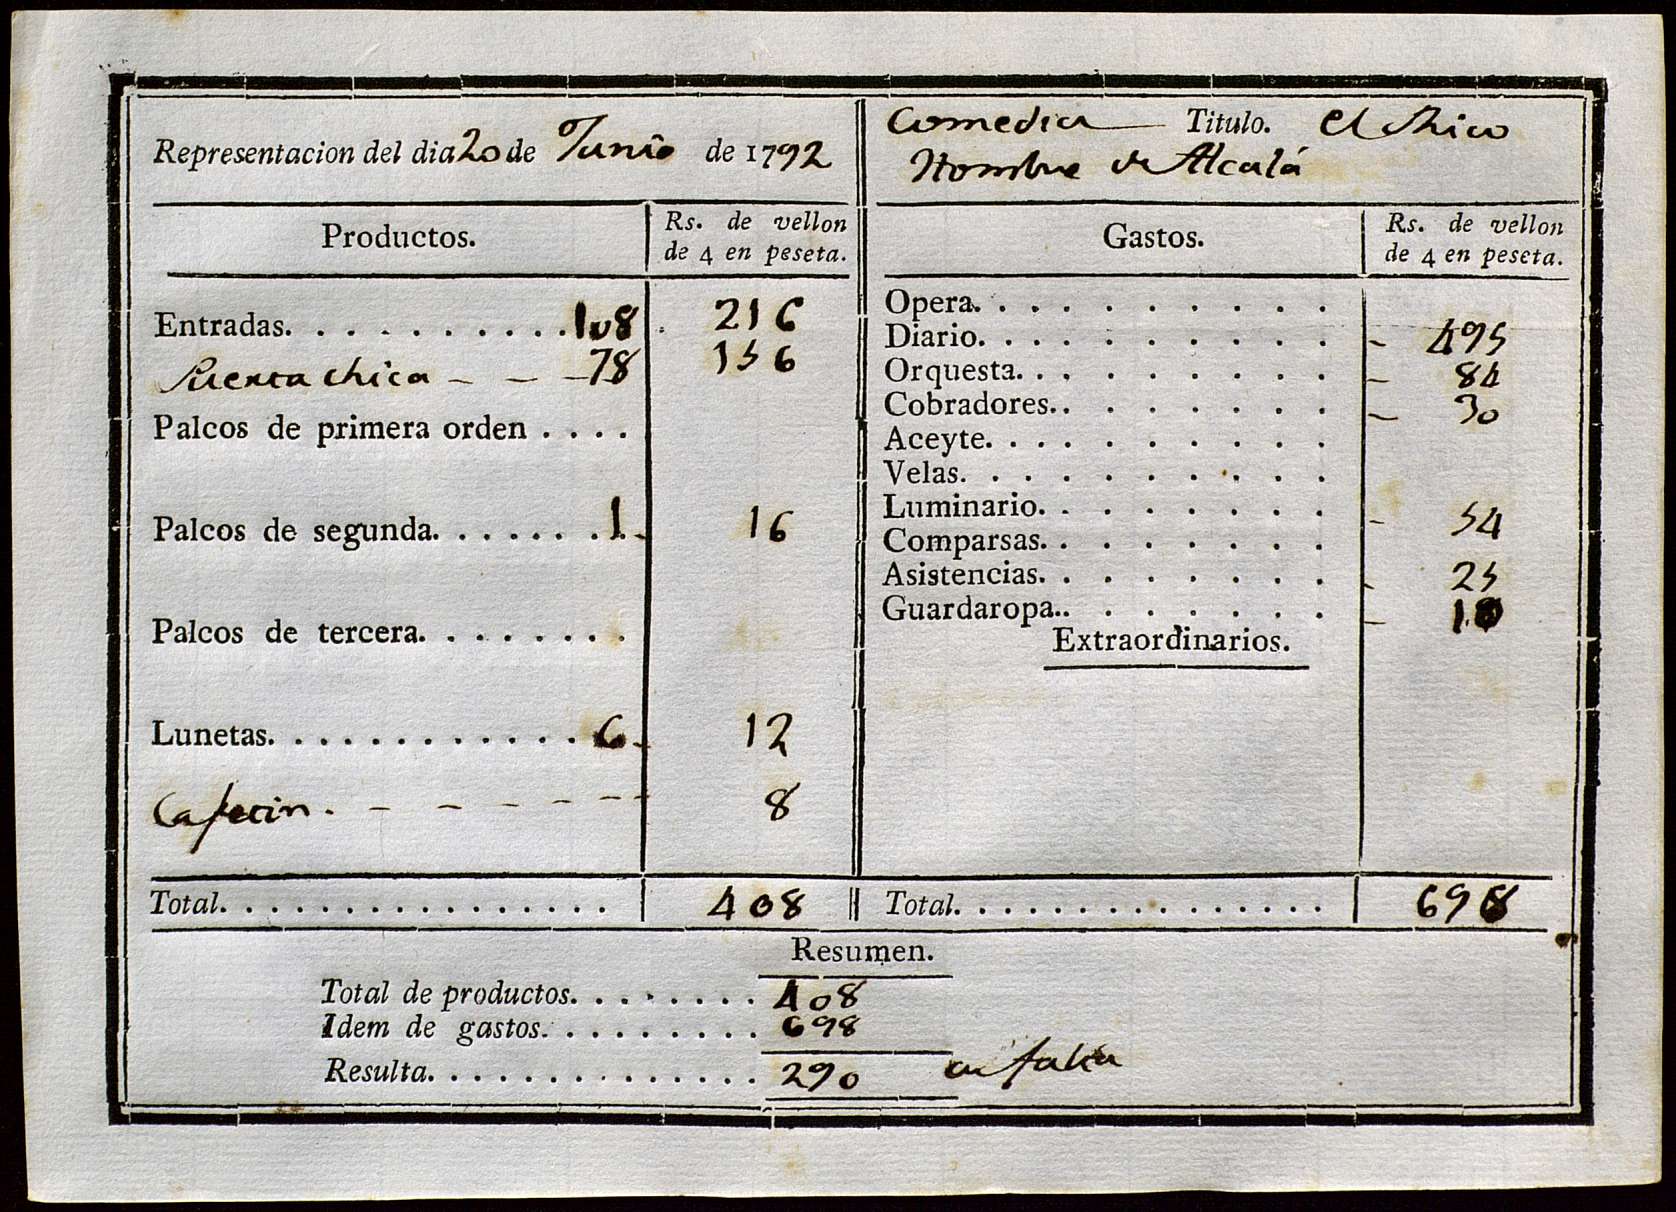 Representacion del dia 20 de Junio de 1792
Comedia Titulo. el Rico
Hombre de Alcalá
Productos.
Rs. de vellon
de 4 en peseta.
Entradas. . . . . . . . . . 108 216
Puerta chica - - - 78 156
Palcos de primera orden . . . .
Palcos de segunda. . . . . . . 1 16
Palcos de tercera. . . . . . . .
Lunetas. . . . . . . . . . . . 6 12
8
Total. . . . . . . . . . . . . . . . 408
Gastos.
Rs. de vellon
de 4 en peseta.
Opera. . . . . . . . . .
Diario. . . . . . . . . . - 495
Orquesta. . . . . . . . . - 84
Cobradores. . . . . . . . - 30
Aceyte. . . . . . . . . .
Velas. . . . . . . . . .
Luminario. . . . . . . . - 54
Comparsas. . . . . . . .
Asistencias. . . . . . . . - 25
Guardaropa. . . . . . . . - 10
Extraordinarios.
Total. . . . . . . . . . . . . . . 698
Resumen.
Total de productos. . . . . . . . 408
Idem de gastos. . . . . . . . . 698
Resulta. . . . . . . . . . . . . 290 falta